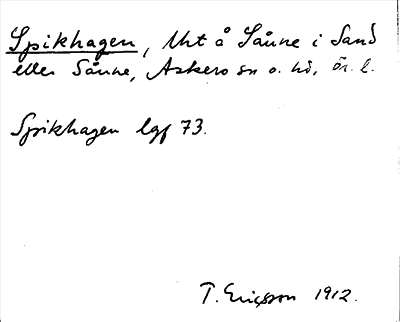 Spikhagen, Uht å Sånne i Sand
eller Sånne, Askers sn o. hd, ör. l.
Spikhagen lgf 73.
T. Ericsson 1912.